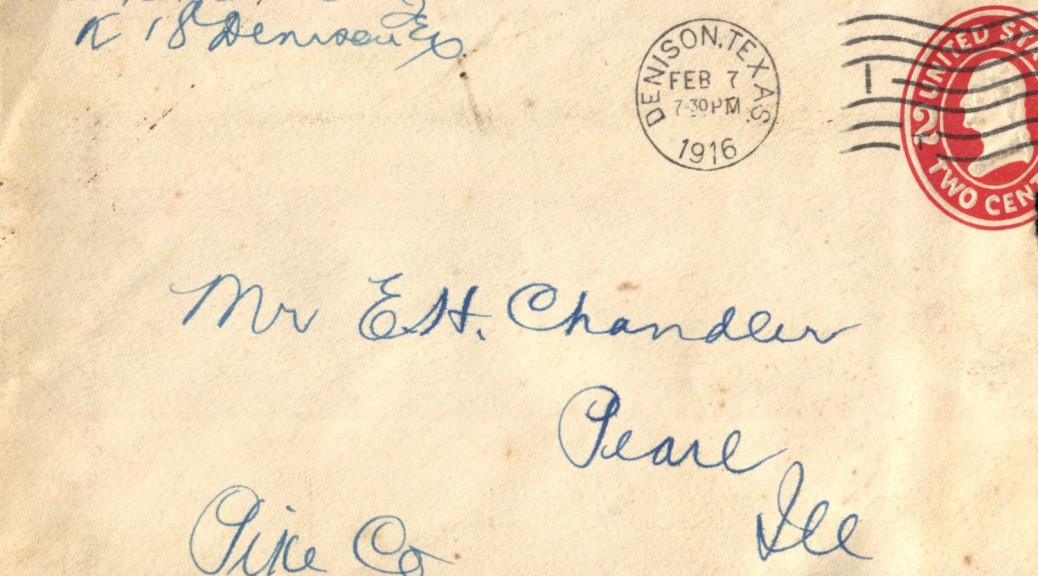 R 18 Denison Tex
DENISON, TEXAS
FEB 7
7-30 PM
1916
1
UNITED ST
2
TWO CENT
Mr E.H. Chandler
Pearl
Ill
Pike Co